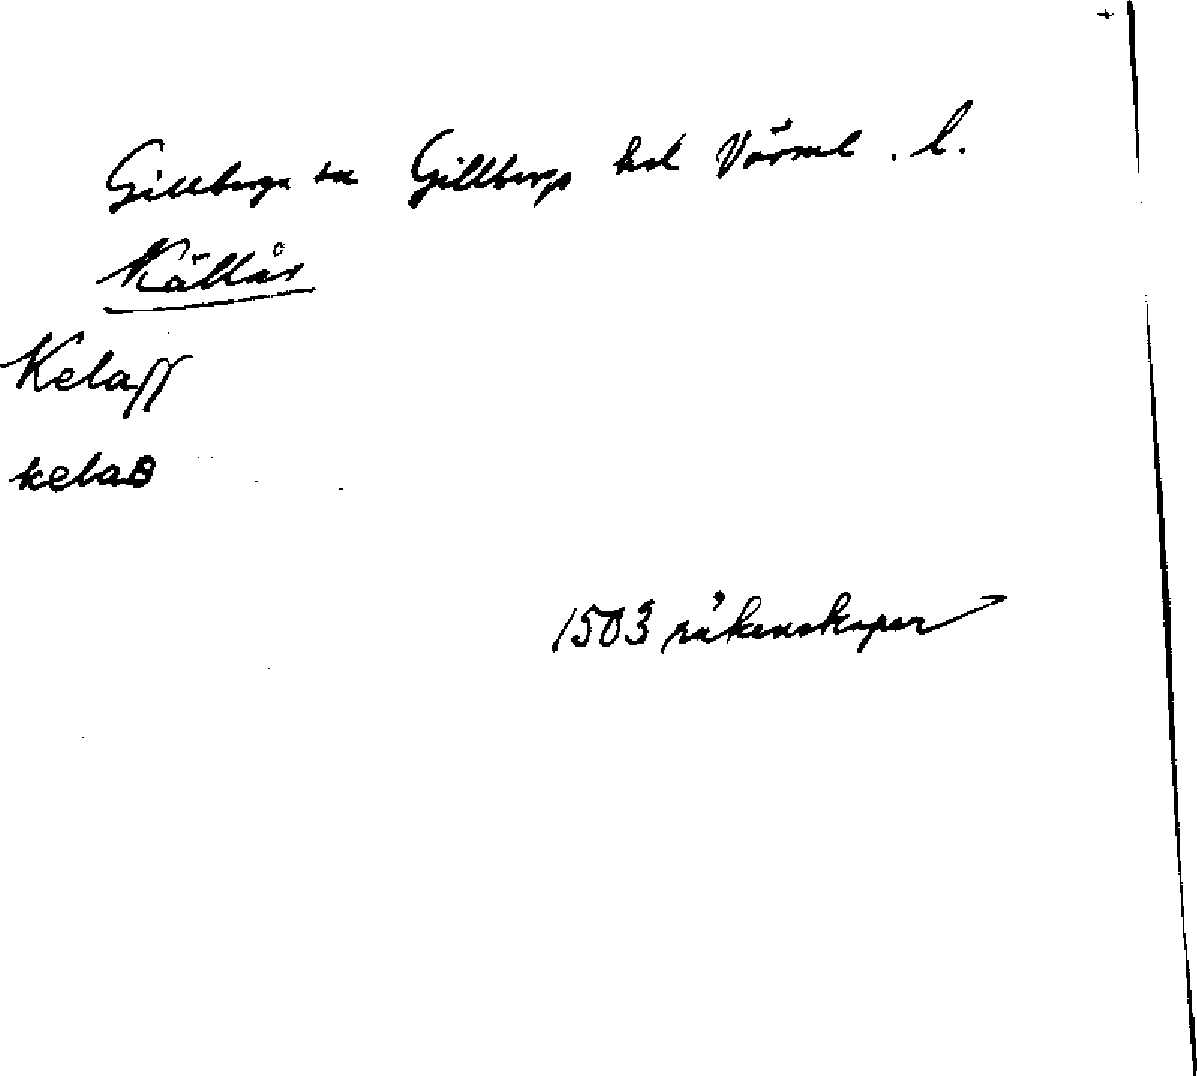 Gillberga sn Gillbergs hd Värml. l.
Källås
Kelaff
kelas
1503 räkenskaper